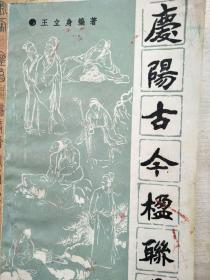 ●王立身編著
慶陽古今楹聯